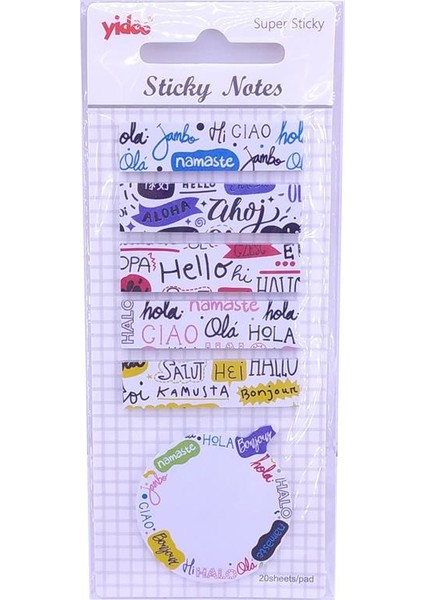 yidoo
Super Sticky
Sticky Notes
ola Jambo Hi CIAO hola
Olá namaste Jambo Olá
HELLO
ALOHA Ahoj
OPA Hello hi
HALLO
hola namaste hola
HALO CIAO Olá HOLA
SALUT HEI HALLO
toi KAMUSTA Bonjour
HOLA Bonjour
namaste hola
Jambo HALO
CIAO
Bonjour namaste
Hi HALO Olá
20sheets/pad